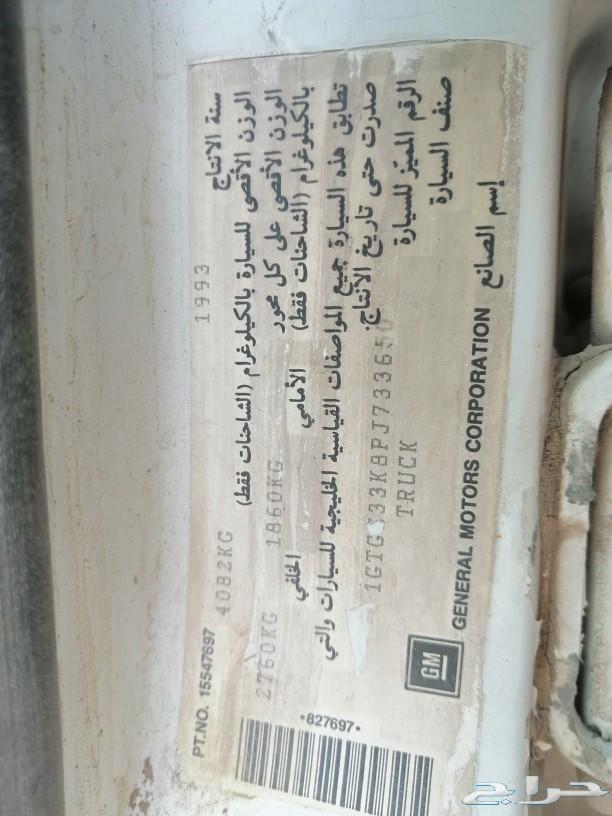 PT.NO. 15547697
سنة الانتاج 1993
الوزن الأقصى للسيارة بالكيلوغرام (الشاحنات فقط) 4082KG
الوزن الأقصى على كل محور 1860KG 2760KG
بالكيلوغرام (الشاحنات فقط) الأمامي الخلفي
تطابق هذه السيارة جميع المواصفات القياسية الخليجية للسيارات والتي
صدرت حتى تاريخ الانتاج.
الرقم المميز للسيارة
صنف السيارة TRUCK
إسم الصانع GENERAL MOTORS CORPORATION
GM
*827697*
حراج